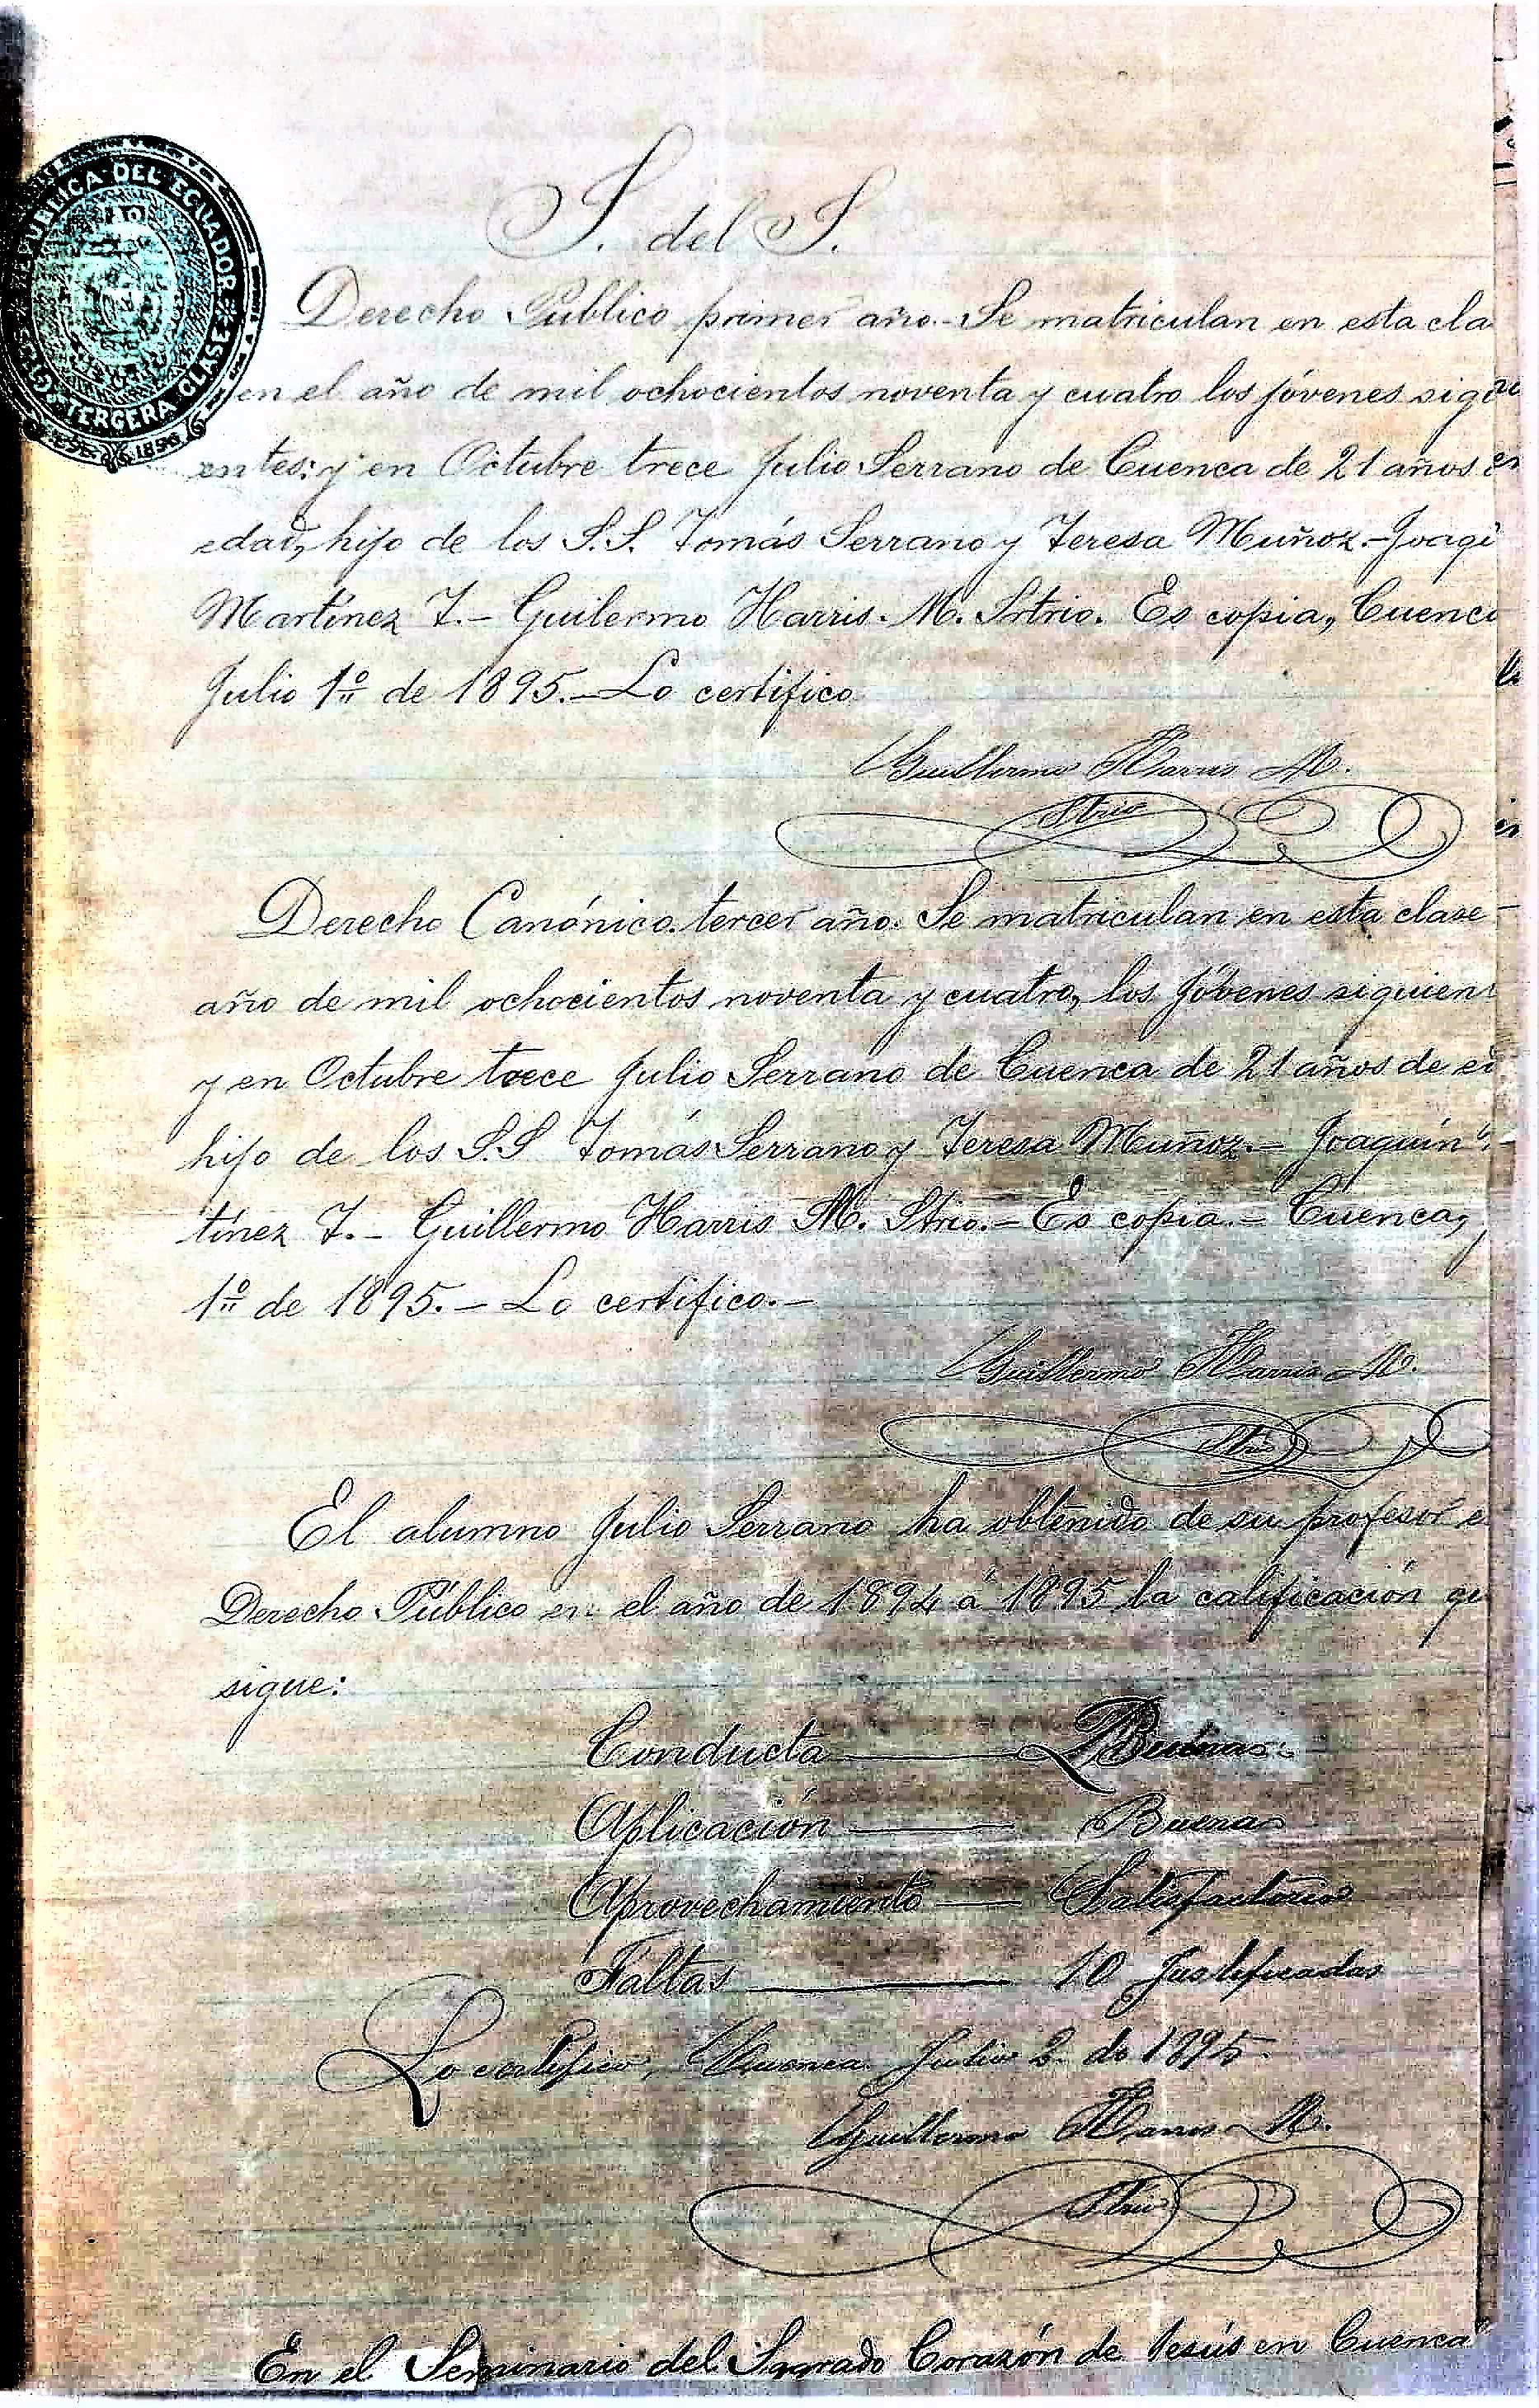 REPUBLICA DEL ECUADOR
TERCERA CLASE
S. del S.
Derecho Publico primer año.- Se matriculan en esta cla
en el año de mil ochocientos noventa y cuatro los jóvenes sigui
entes: y en Octubre trece Julio Serrano de Cuenca de 21 años
edad, hijo de los S.S. Tomás Serrano y Teresa Muñoz.- Joaqi
Martínez T.- Guilermo Harris. M. Srtrio. Es copia, Cuenca
Julio 1º de 1895.- Lo certifico
Guillermo Harris M.
Strio
Derecho Canónico tercer año. Se matriculan en esta clase
año de mil ochocientos noventa y cuatro, los jóvenes siguien
y en Octubre trece Julio Serrano de Cuenca de 21 años de ed
hijo de los S.S Tomás Serrano y Teresa Muñoz.- Joaquín
tínez T.- Guillermo Harris M. Strio.- Es copia.- Cuenca,
1º de 1895.- Lo certifico.-
Guillermo Harris M.
Strio
El alumno Julio Serrano ha obtenido de su profesor e
Derecho Público en el año de 1894 á 1895 la calificación qu
sigue:
Conducta — Buena
Aplicación — Buena
Aprovechamiento — Satisfactorio
Faltas — 10 Justificadas
Lo certifico, Cuenca Julio 2 de 1895.
Guillermo Harris M.
Strio
En el Seminario del Sagrado Corazón de Jesús en Cuenca